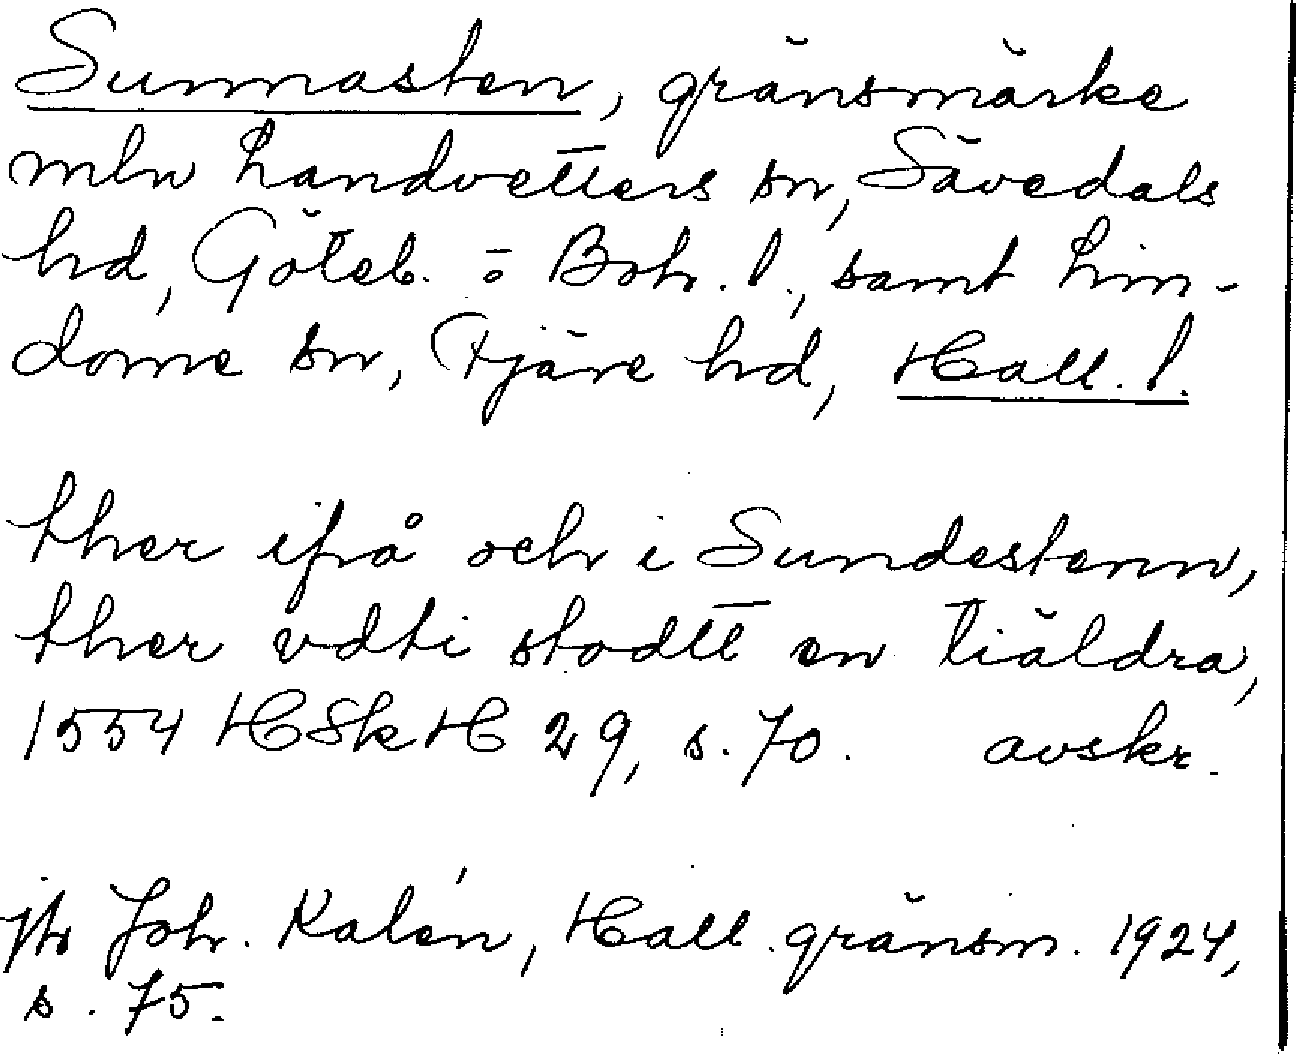 Sunnasten, gränsmärke
mln Landvetters sn, Sävedals
hd, Göteb. o Boh. l., samt Lin-
dome sn, Fjäre hd, Hall. l.
ther ifrå och i Sundestenn,
ther vdti stodtt en tiäldra,
1554 HSkH 29, s. 70. avskr.
jfr Joh. Kalén, Hall. gränsm. 1924,
s. 75.